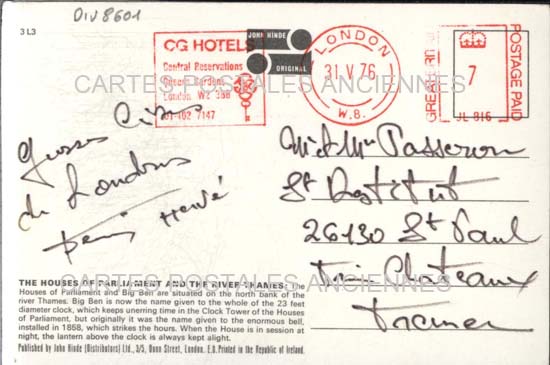 DIV8601
3 L3
CG HOTELS
Central Reservations
Queens Gardens
London W2 3BB
01-402 7147
JOHN HINDE
ORIGINAL
LONDON
31 V 76
W.8.
GREAT BRITAIN
7
POSTAGE PAID
JL 816
CARTES POSTALES ANCIENNES
Grosses Bises
de Londres
Hervé
M et Mme Passeron
St Restitut
26130 St Paul
Trois Chateaux
France
THE HOUSES OF PARLIAMENT AND THE RIVER THAMES: The
Houses of Parliament and Big Ben are situated on the north bank of the
river Thames. Big Ben is now the name given to the whole of the 23 feet
diameter clock, which keeps unerring time in the Clock Tower of the Houses
of Parliament, but originally it was the name given to the enormous bell,
installed in 1858, which strikes the hours. When the House is in session at
night, the lantern above the clock is always kept alight.
Published by John Hinde (Distributors) Ltd., 3/5, Dunn Street, London. E.8. Printed in the Republic of Ireland.
CARTES POSTALES ANCIENNES